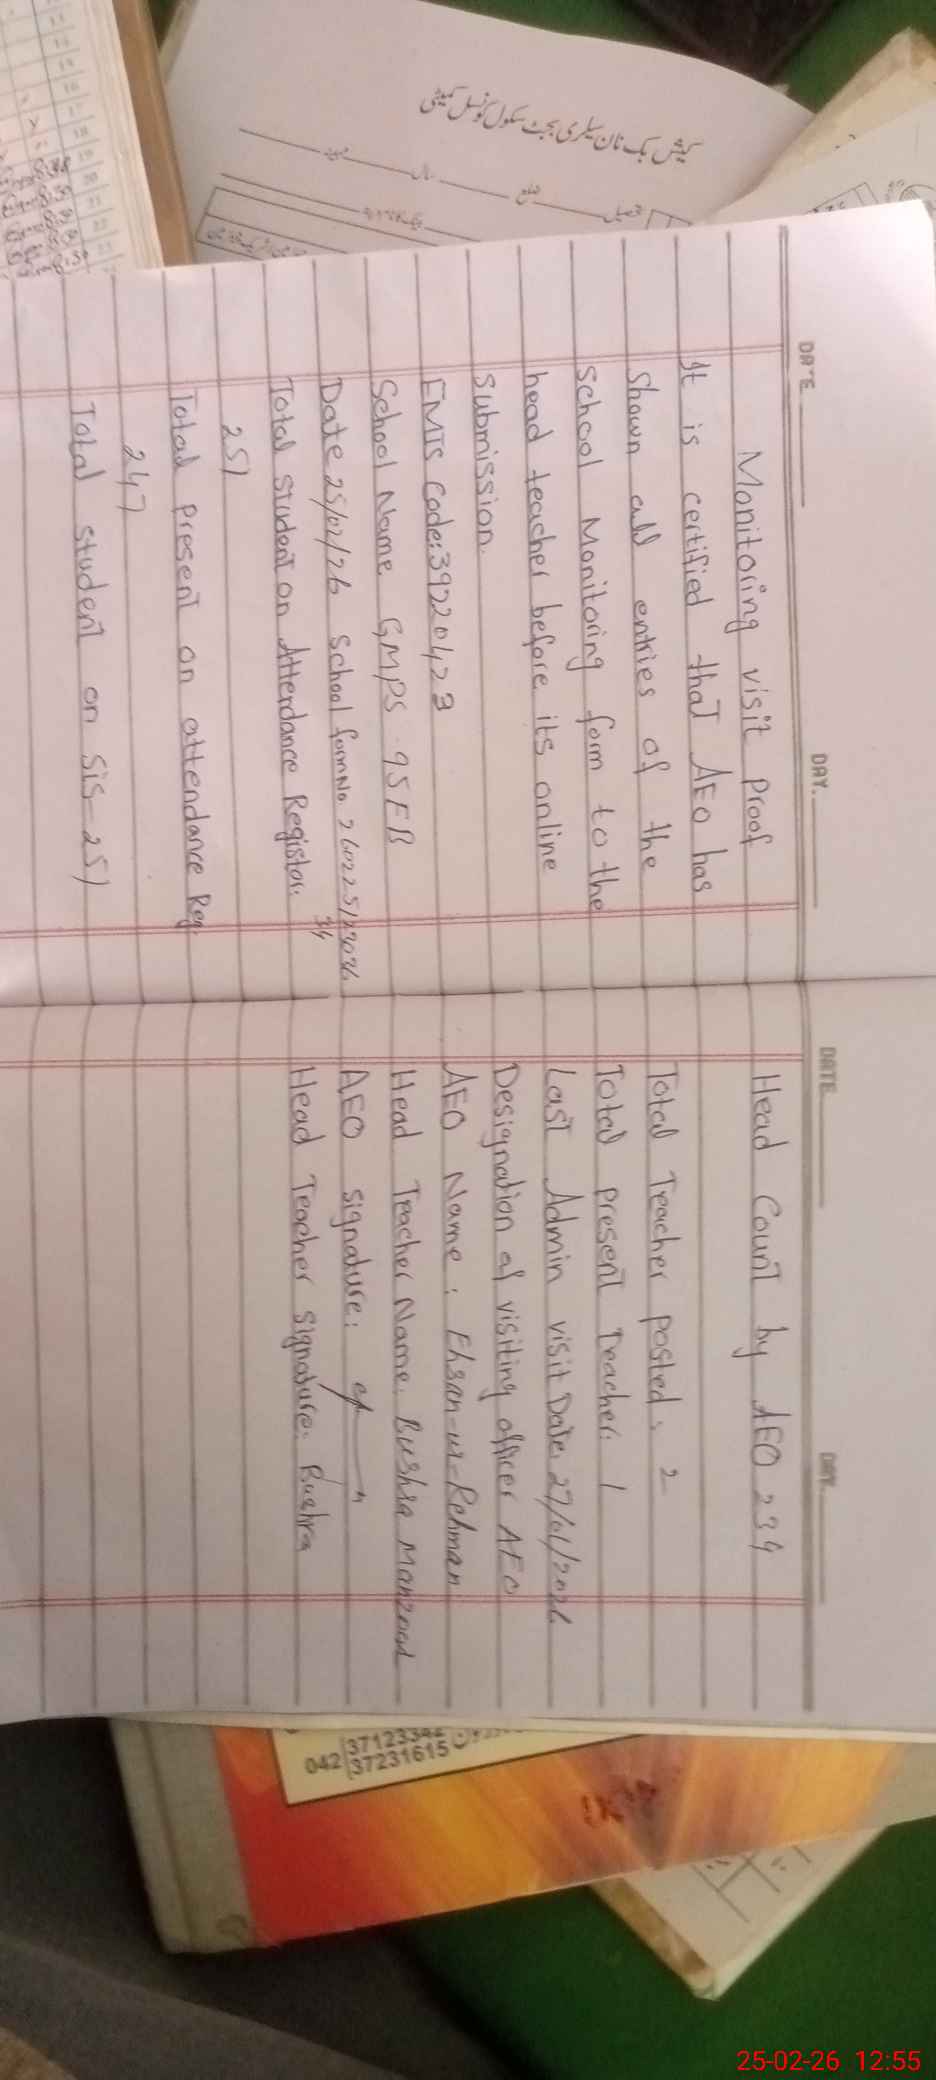 DATE
DAY.
Monitoring visit Proof
It is certified that AEO has
shown all entries of the
school Monitoring form to the
head teacher before its online
submission.
EMIS Code: 39220423
School Name GMPS 95EB
Date 25/02/26 School form No.
Total student on Attendance Register.
251
Total present on attendance Reg.
247
Total student on SIS-251
DATE
DAY.
Head Count by AEO 234
Total Teacher posted: 2
Total present Teacher: 1
Last Admin visit Date: 27/01/2026
Designation of visiting officer AEO
AEO Name: Ehsan-ur-Rehman
Head Teacher Name: Bushra Manzoor
AEO signature:
Head Teacher signature: Bushra
کیش بک نان سیلری بجٹ سکول کونسل کمیٹی
تحصیل ضلع سال
042 37231615
25-02-26 12:55